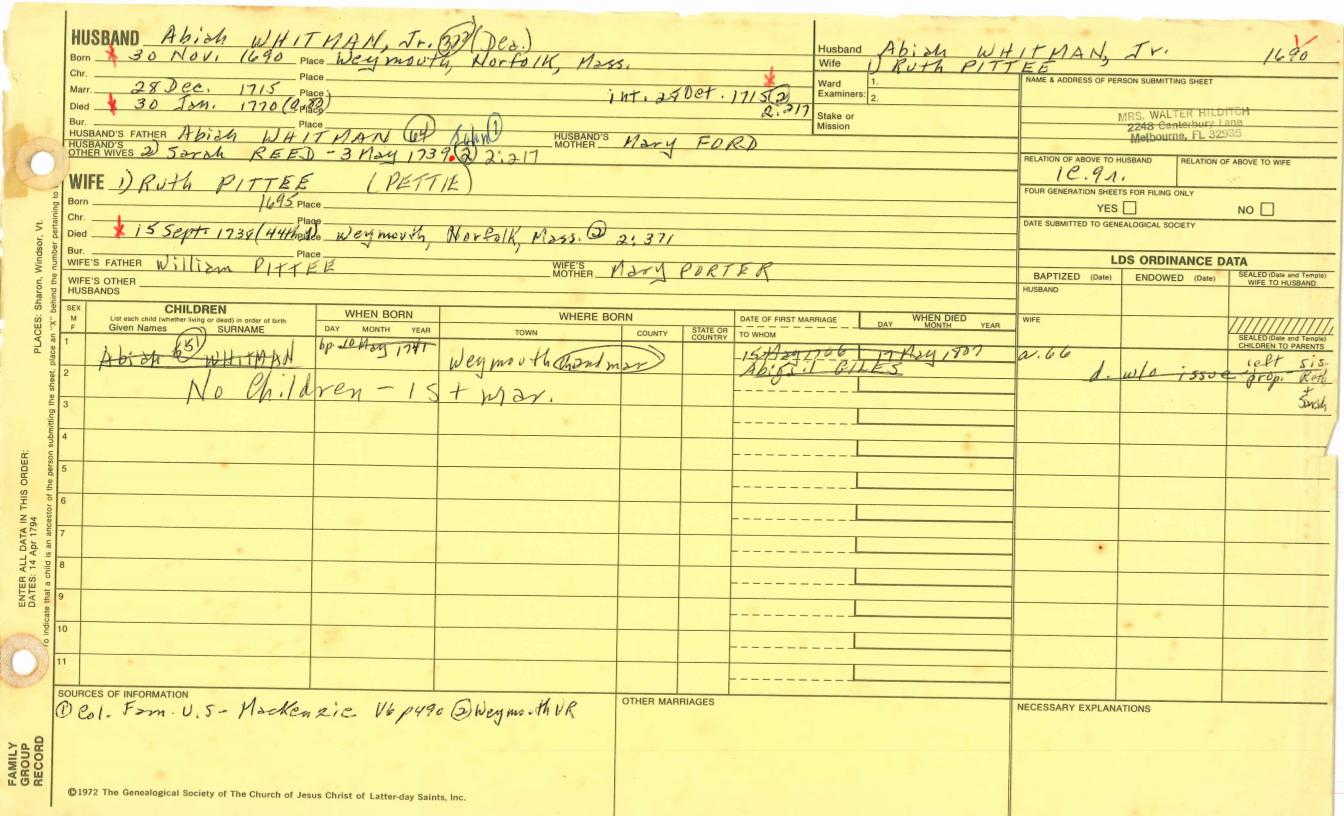 HUSBAND Abiah WHITMAN, Jr. (Dea.)
Born 30 Nov. 1690 Place Weymouth, Norfolk, Mass.
Chr. Place
Marr. 28 Dec. 1715 Place int. 28 Oct. 1715 (2) 2:217
Died 30 Jan. 1770 Place
Bur. Place
HUSBAND'S FATHER Abiah WHITMAN (64) John (1) HUSBAND'S MOTHER Mary FORD
HUSBAND'S OTHER WIVES 2) Sarah REED - 3 May 1739. (2) 2:217
WIFE 1) Ruth PITTEE (PETTIE)
Born 1695 Place
Chr. Place
Died 15 Sept. 1738 (44th Place Weymouth, Norfolk, Mass. (2) 2:371
Bur. Place
WIFE'S FATHER William PITTEE WIFE'S MOTHER Mary PORTER
WIFE'S OTHER HUSBANDS
Husband Abiah WHITMAN, Jr. 1690
Wife 1) Ruth PITTEE
Ward Examiners: 1. 2.
Stake or Mission
NAME & ADDRESS OF PERSON SUBMITTING SHEET
MRS. WALTER HILDITCH
2248 Canterbury Lane
Melbourne, FL 32935
RELATION OF ABOVE TO HUSBAND RELATION OF ABOVE TO WIFE
FOUR GENERATION SHEETS FOR FILING ONLY
YES NO
DATE SUBMITTED TO GENEALOGICAL SOCIETY
LDS ORDINANCE DATA
BAPTIZED (Date) ENDOWED (Date) SEALED (Date and Temple) WIFE TO HUSBAND
HUSBAND
WIFE
SEALED (Date and Temple) CHILDREN TO PARENTS
SEX M F CHILDREN
List each child (whether living or dead) in order of birth
Given Names SURNAME
WHEN BORN DAY MONTH YEAR
WHERE BORN TOWN COUNTY STATE OR COUNTRY
DATE OF FIRST MARRIAGE TO WHOM
WHEN DIED DAY MONTH YEAR
1 Abiah (51) WHITMAN bp 10 May 1741 Weymouth (2nd mar) 17 May 1807 a. 66
Abigail GILES d. w/o issue left prop. sis. Ruth + Sarah
2 No Children - 1st mar.
3
4
5
6
7
8
9
10
11
SOURCES OF INFORMATION
(1) Col. Fam. U.S - MacKenzie V6 p490 (2) Weymouth VR
OTHER MARRIAGES
NECESSARY EXPLANATIONS
©1972 The Genealogical Society of The Church of Jesus Christ of Latter-day Saints, Inc.
FAMILY GROUP RECORD
ENTER ALL DATA IN THIS ORDER:
DATES: 14 Apr 1794
PLACES: Sharon, Windsor, Vt.
To indicate that a child is an ancestor of the person submitting the sheet, place an "X" behind the number pertaining to